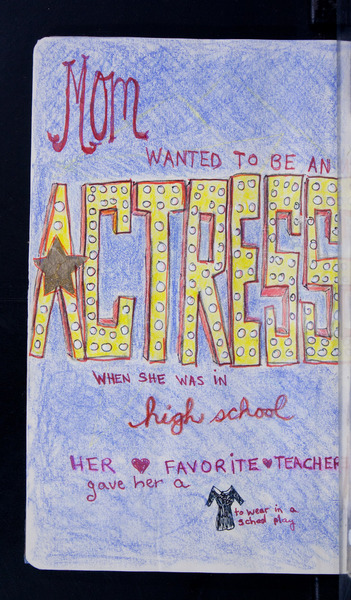 Mom
WANTED TO BE AN
ACTRESS
WHEN SHE WAS IN
high school
HER FAVORITE TEACHER
gave her a
to wear in a
school play